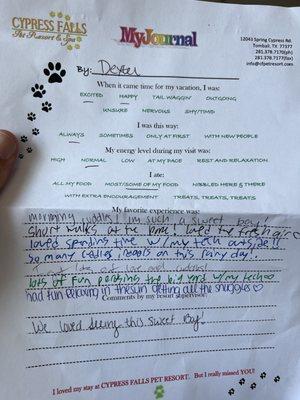 CYPRESS FALLS
Pet Resort & Spa
MyJournal
12041 Spring Cypress Rd.
Tomball, TX 77377
281.378.7170(ph)
281.378.7179(fx)
info@cfpetresort.com
By: Dexter
When it came time for my vacation, I was:
EXCITED HAPPY TAIL WAGGIN' OUTGOING
UNSURE NERVOUS SHY/TIMID
I was this way:
ALWAYS SOMETIMES ONLY AT FIRST WITH NEW PEOPLE
My energy level during my visit was:
HIGH NORMAL LOW AT MY PACE REST AND RELAXATION
I ate:
ALL MY FOOD MOST/SOME OF MY FOOD NIBBLED HERE & THERE
WITH EXTRA ENCOURAGEMENT TREATS, TREATS, TREATS
My favorite experience was:
morning cuddles! I'm such a sweet boy!
Short walks at the time! loved the fresh air
loved spending time w/my tech outside!!
So many cuddles inside on this rainy day!
lots of fun the big yard w/ my techs
had fun relaxing in the sun getting all the snuggles ♡
Comments by my resort supervisor:
We loved seeing this sweet Boy!
I loved my stay at CYPRESS FALLS PET RESORT. But I really missed YOU!